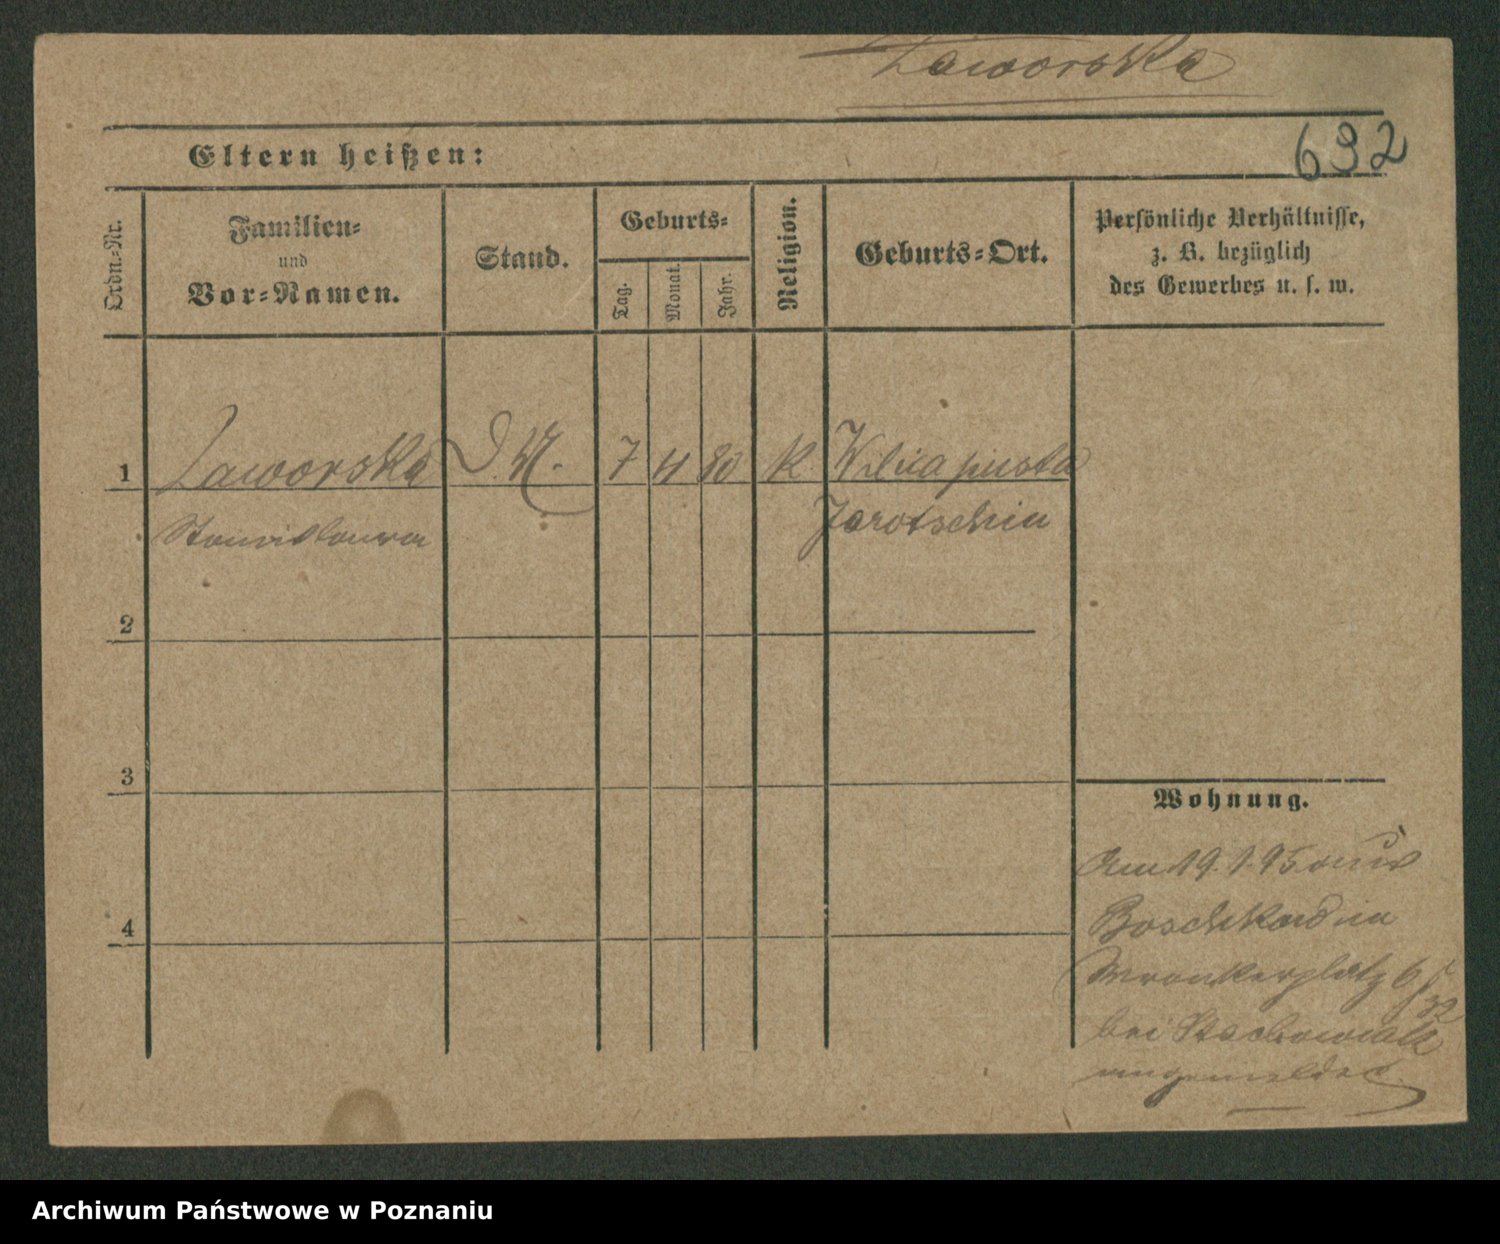 Zaworska
Eltern heißen:
692
Ordn.-Nr.
Familien-
und
Vor-Namen.
Stand.
Geburts-
Tag.
Monat.
Jahr.
Religion.
Geburts-Ort.
Persönliche Verhältnisse,
z. B. bezüglich
des Gewerbes u. s. w.
1 Zaworska D. M. 7 4 80 K. Wilica pusta
Stanislawa Jarotschin
2
3
4
Wohnung.
Am 19. 1. 95 aus
in
Wronkerplatz 6
bei Stachowiak
angemeldet.
Archiwum Państwowe w Poznaniu